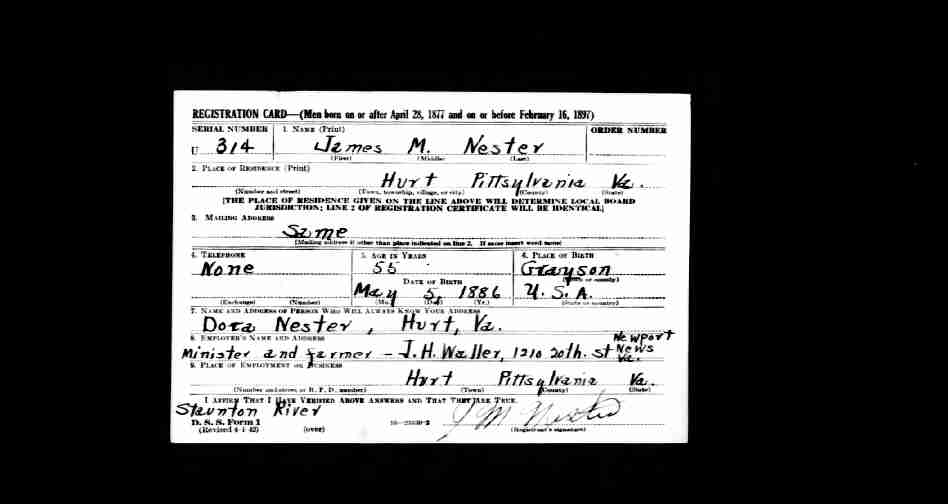 REGISTRATION CARD—(Men born on or after April 28, 1877 and on or before February 16, 1897)
SERIAL NUMBER 1. NAME (Print) ORDER NUMBER
U 314 James M. Nester
(First) (Middle) (Last)
2. PLACE OF RESIDENCE (Print)
Hurt Pittsylvania Va.
(Number and street) (Town, township, village, or city) (County) (State)
[THE PLACE OF RESIDENCE GIVEN ON THE LINE ABOVE WILL DETERMINE LOCAL BOARD
JURISDICTION; LINE 2 OF REGISTRATION CERTIFICATE WILL BE IDENTICAL]
3. MAILING ADDRESS
Same
[Mailing address if other than place indicated on line 2. If same insert word same]
4. TELEPHONE 5. AGE IN YEARS 6. PLACE OF BIRTH
None 55 Grayson
DATE OF BIRTH (Town or county)
May 5, 1886 U. S. A.
(Exchange) (Number) (Mo.) (Day) (Yr.) (State or country)
7. NAME AND ADDRESS OF PERSON WHO WILL ALWAYS KNOW YOUR ADDRESS
Dora Nester, Hurt, Va.
8. EMPLOYER'S NAME AND ADDRESS Newport
Minister and farmer – J. H. Waller, 1210 20th. St News
Va.
9. PLACE OF EMPLOYMENT OR BUSINESS
Hurt Pittsylvania Va.
(Number and street or R. F. D. number) (Town) (County) (State)
I AFFIRM THAT I HAVE VERIFIED ABOVE ANSWERS AND THAT THEY ARE TRUE.
Staunton River
D. S. S. Form 1 J M Nester
(Revised 4-1-42) (over) (Registrant's signature)